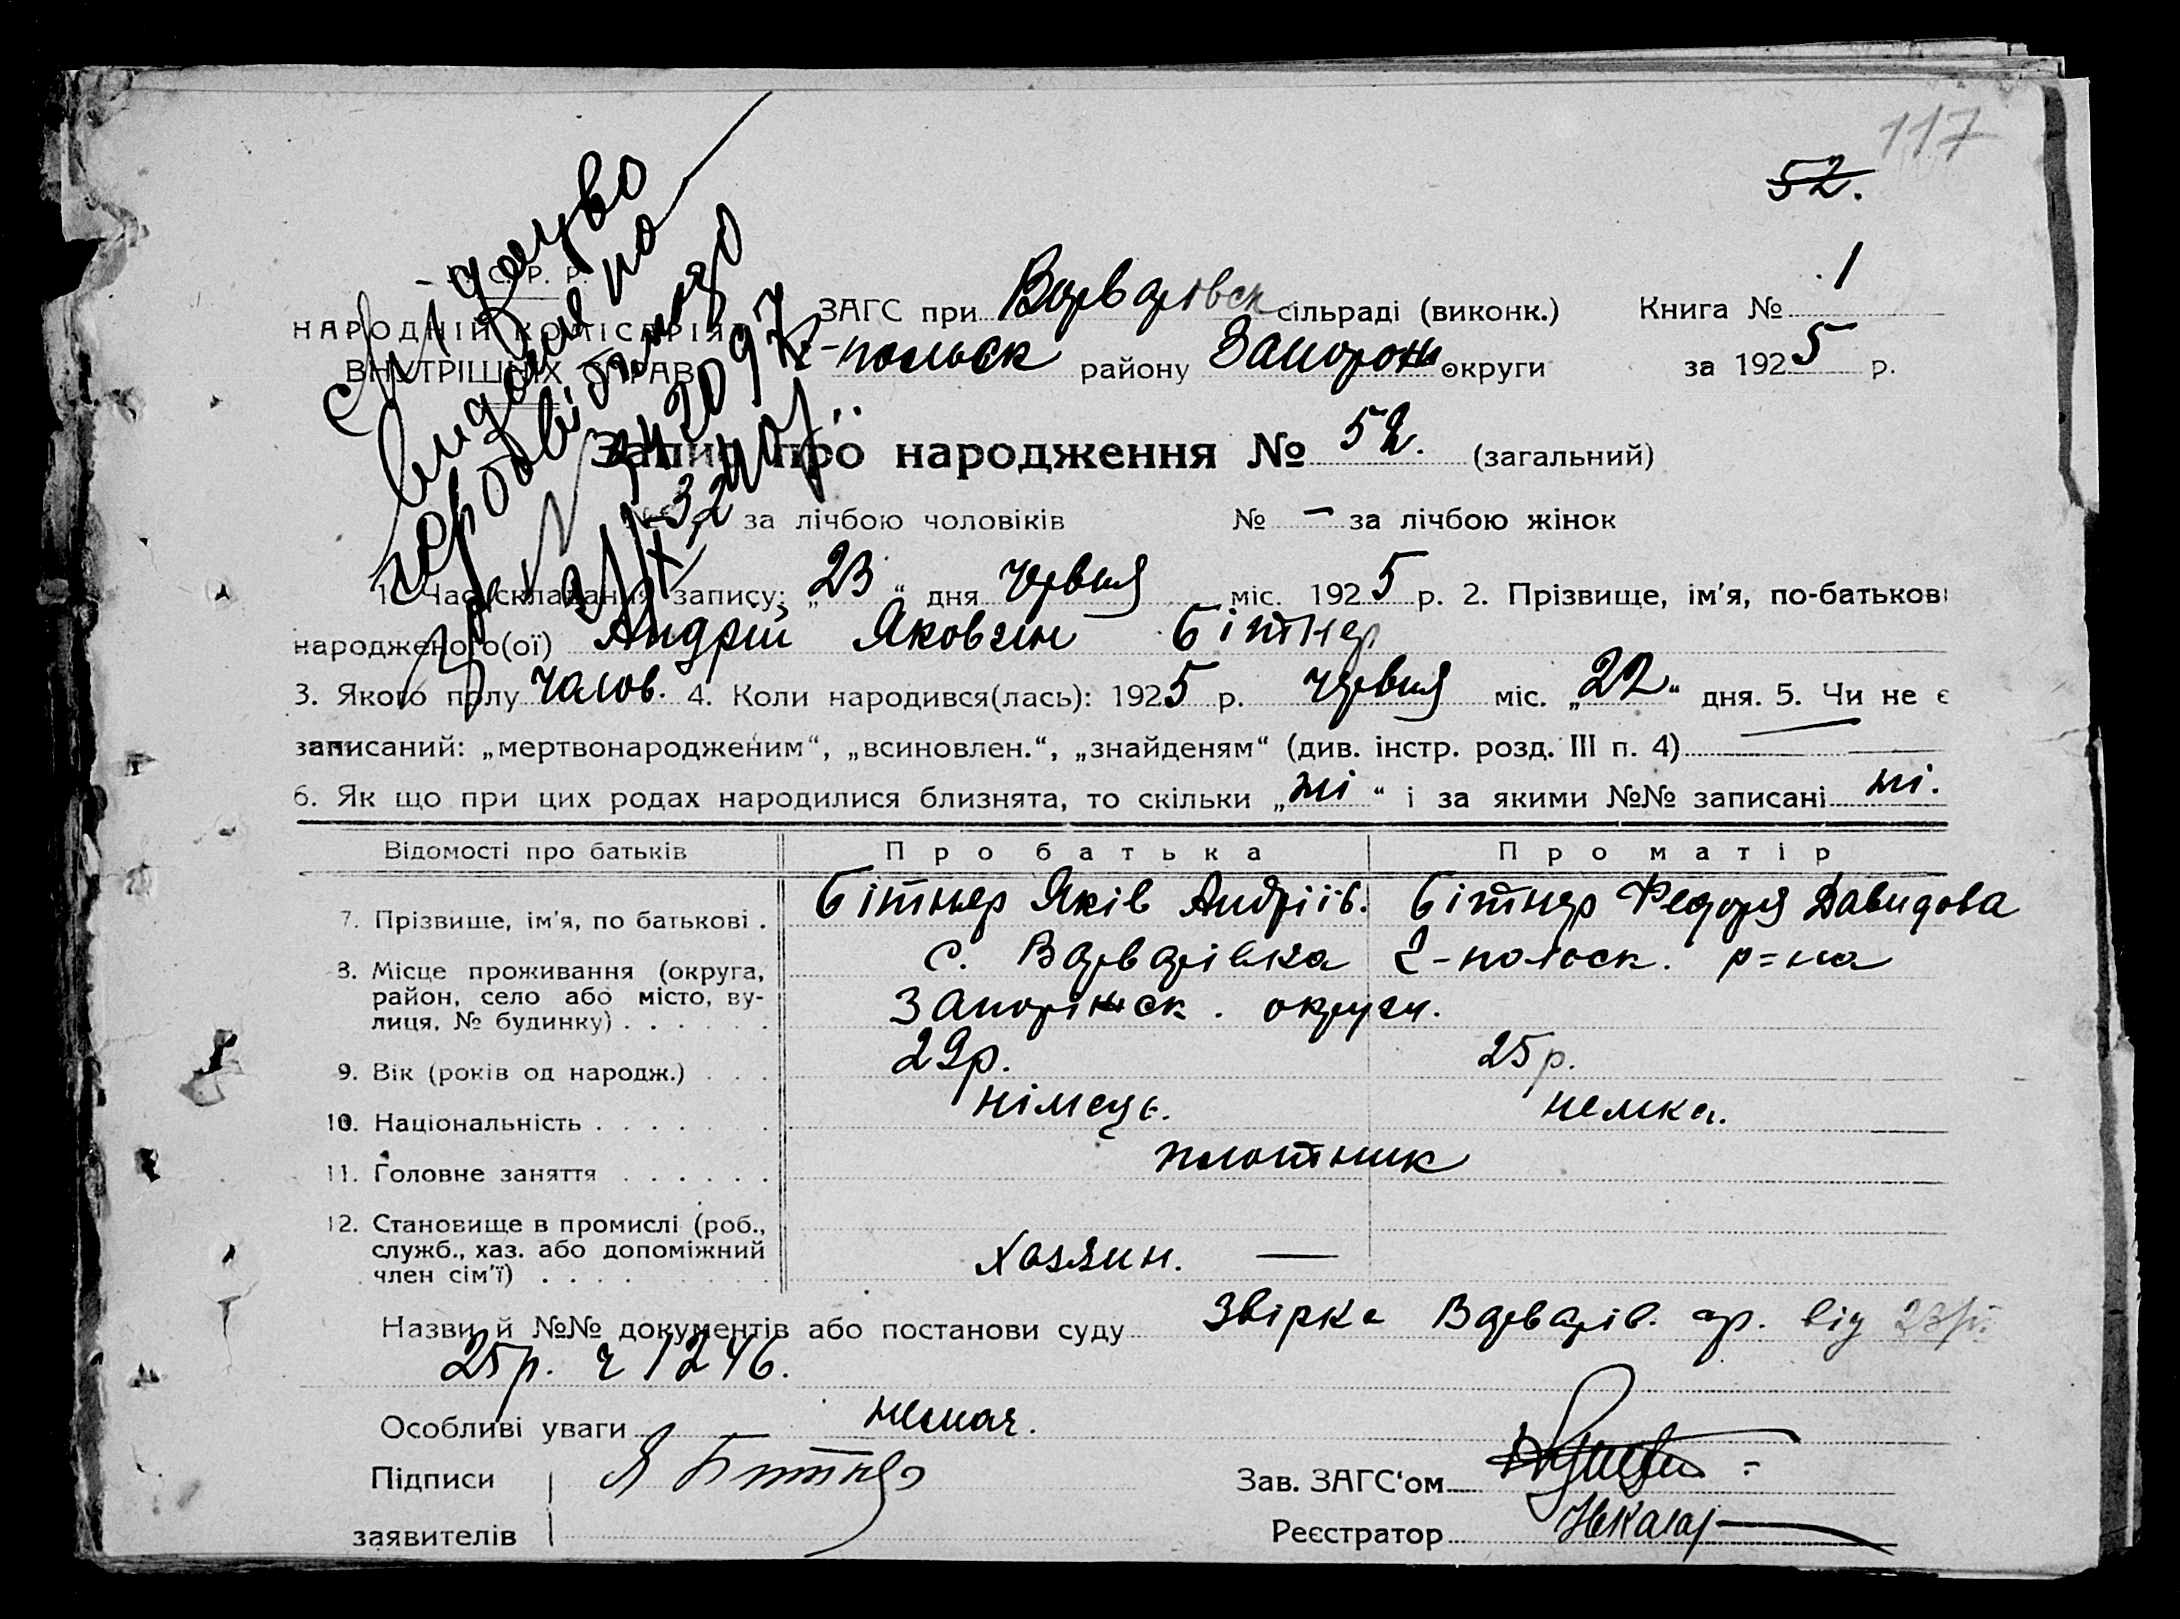 117
52.
У. С. Р. Р.
НАРОДНІЙ КОМІСАРІЯТ
ВНУТРІШНІХ СПРАВ
ЗАГС при Варварівск сільраді (виконк.) Книга № 1
-польск району Запорож округи за 1925 р.
Запис про народження № 52. (загальний)
№ 32 за лічбою чоловіків № — за лічбою жінок
1. Час складання запису: „23“ дня червня міс. 1925 р. 2. Прізвище, ім'я, по-батькові
народженого(ої) Андрій Яковлин Бітнер
3. Якого полу чолов. 4. Коли народився(лась): 1925 р. червня міс. „22“ дня. 5. Чи не є
записаний: „мертвонародженим“, „всиновлен.“, „знайденям“ (див. інстр. розд. III п. 4) —
6. Як що при цих родах народилися близнята, то скільки „ні“ і за якими №№ записані ні.
Відомості про батьків Про батька Про матір
7. Прізвище, ім'я, по батькові . Бітнер Яків Андріїв. Бітнер Федоря Давидова
8. Місце проживання (округа, район, село або місто, вулиця, № будинку) с. Варварівка -польск. р=на
Запоріжск. округи.
9. Вік (років од народж.) 29р. 25р.
10. Національність німець. немка.
11. Головне заняття плотник
12. Становище в промислі (роб., служб., хаз. або допоміжний член сім'ї) хазяин. —
Назви й №№ документів або постанови суду Звірка Варварів. від
25р. ч 1246.
Особливі уваги немає.
Підписи Я Битнер Зав. ЗАГС'ом
заявителів Реєстратор